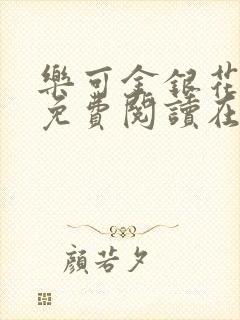 樂可金銀花
免費閱讀在
顏若夕